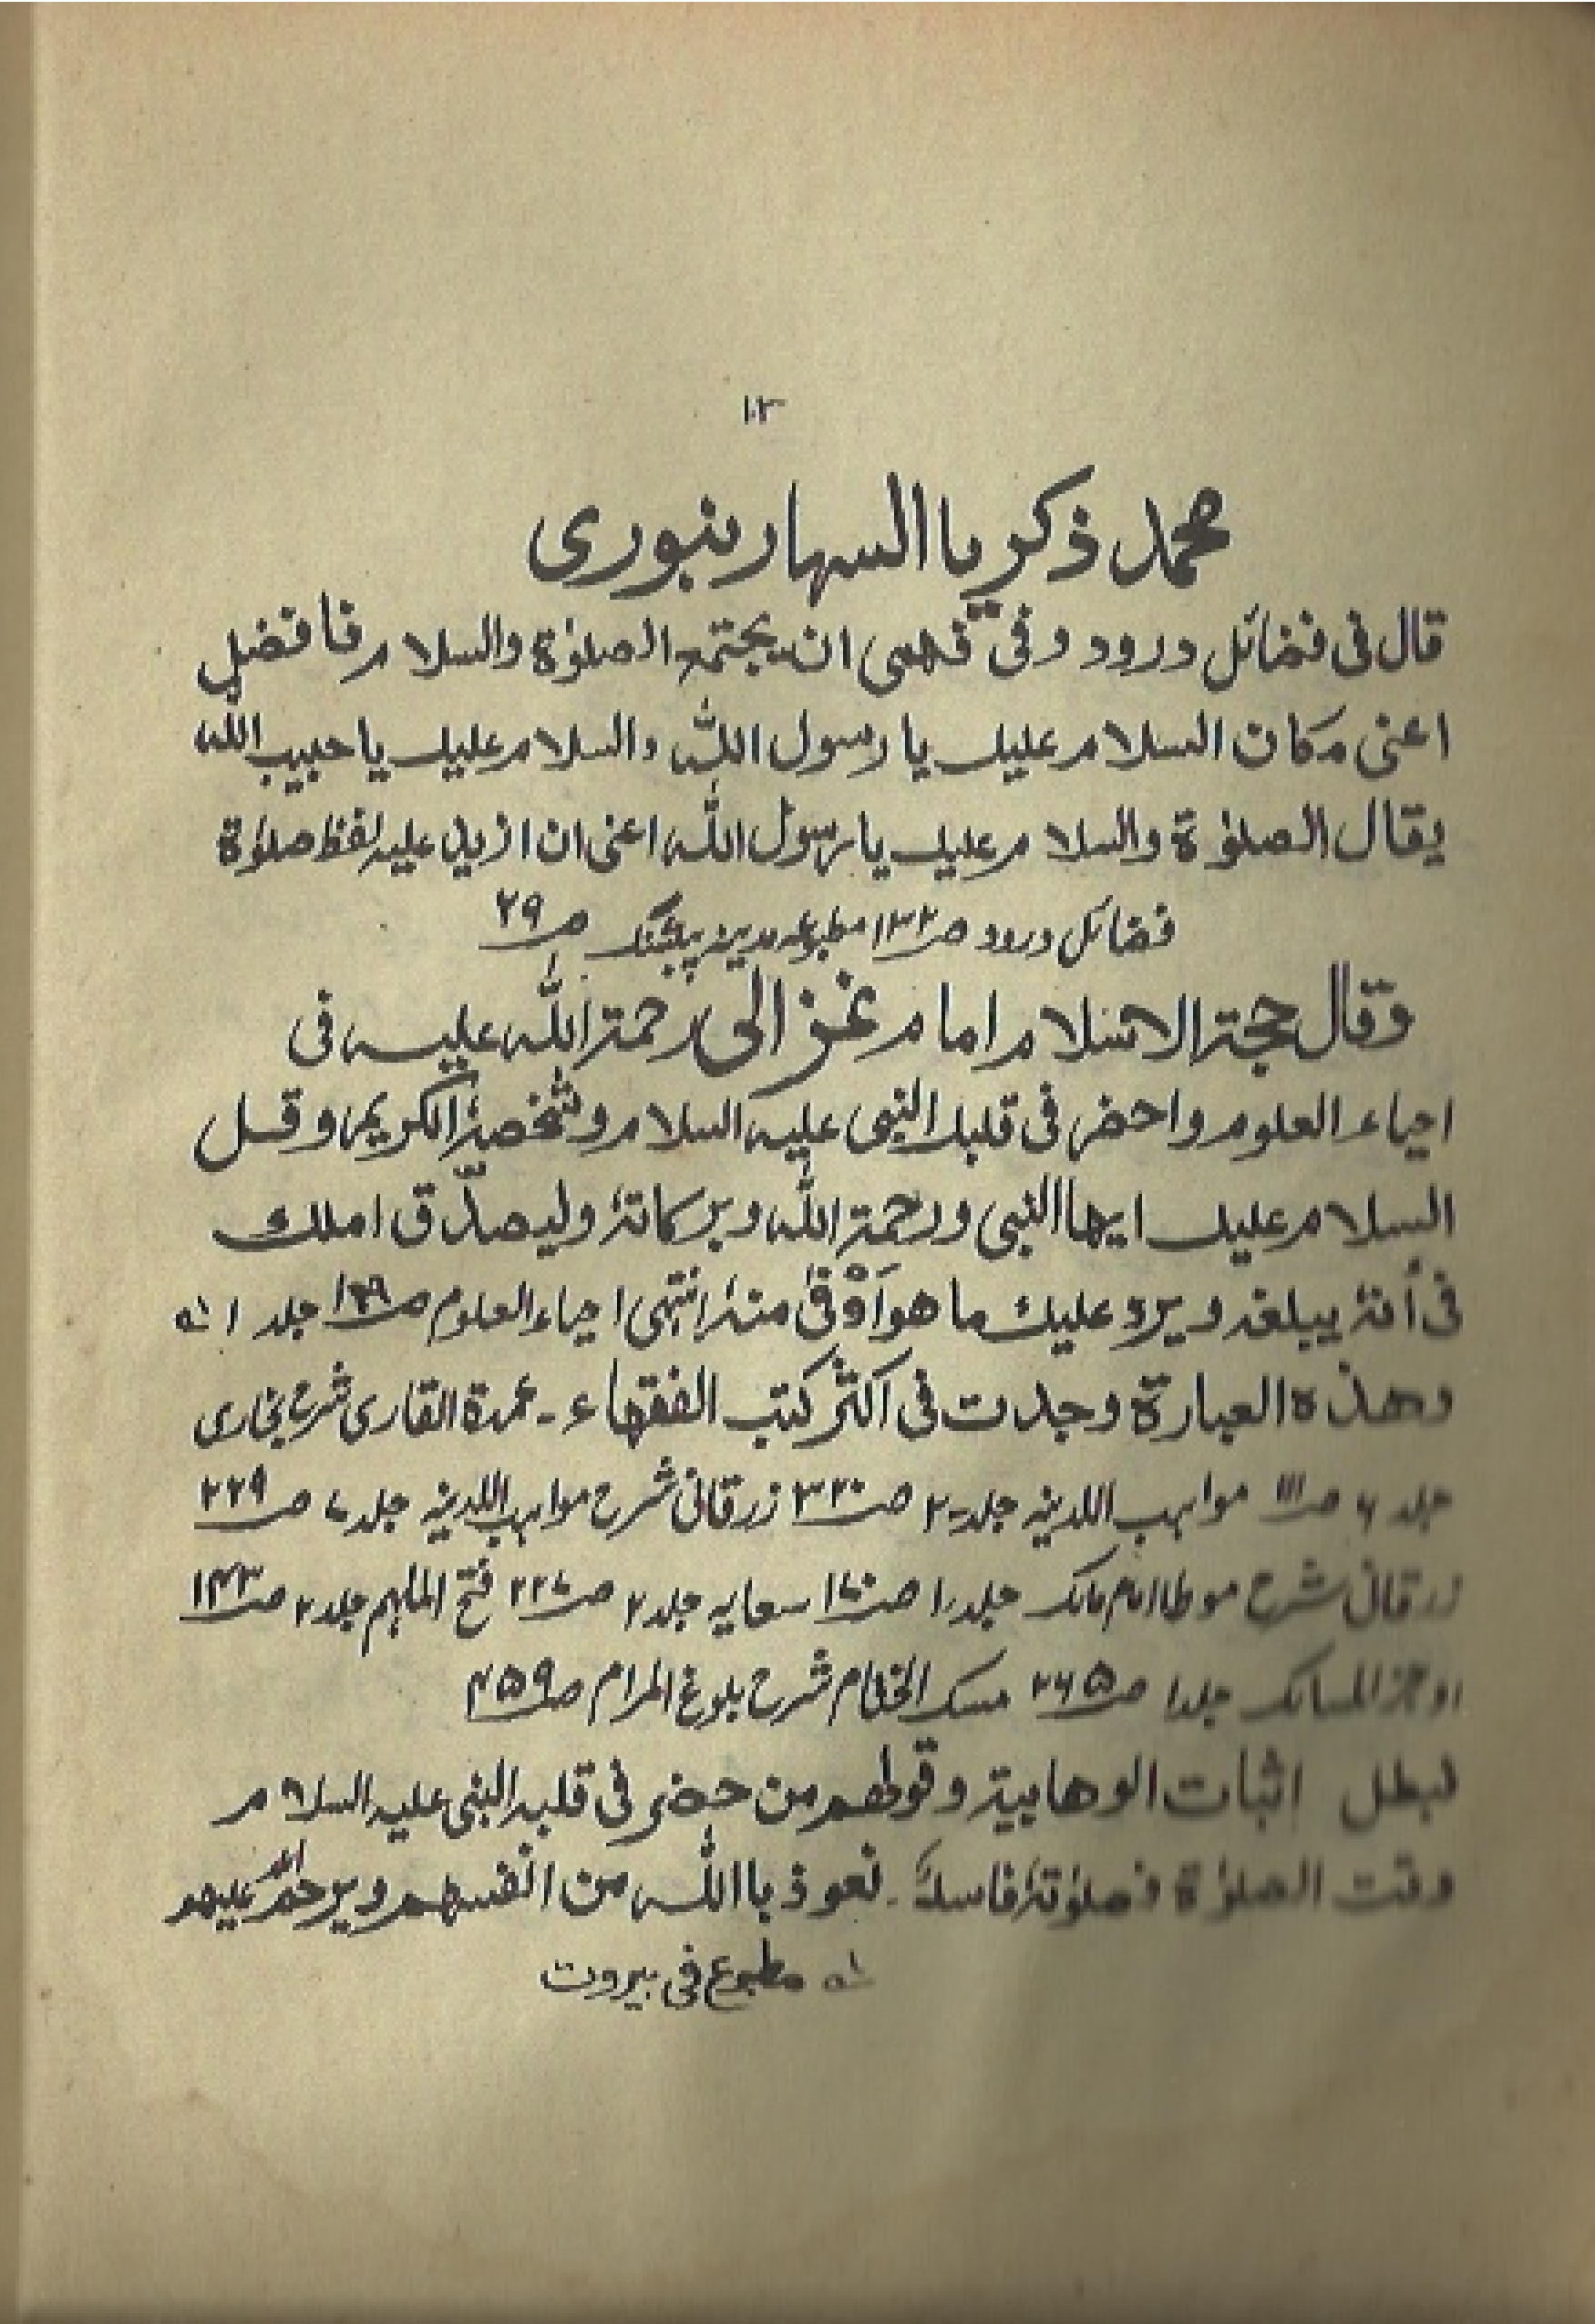 ١٠٢
محمد ذكريا السهارنبورى
قال فى فضائل درود وفى فهمى ان يجتمع الصلوٰة والسلام فافضل
اعنى مكان السلام عليك يا رسول الله والسلام عليك يا حبيب الله
يقال الصلوٰة والسلام عليك يا رسول الله اعنى ان ازيد عليه لفظ صلوٰة
فضائل درود صـ١٣٢ مطبوعه مدينه پبلشنگ صـ٢٩
وقال حجة الاسلام امام غزالى رحمة الله عليه فى
احياء العلوم واحضر فى قلبك النبى عليه السلام وشخصهٗ الكريم وقل
السلام عليك ايها النبى ورحمة الله وبركاتهٗ وليصدّق املك
فى أنهٗ يبلغه ويرد عليك ما هو أوْفىٰ منهٗ انتهى احياء العلوم صـ١٢٩ جلد ١ لـه
وهذه العبارة وجدت فى اكثر كتب الفقهاء ـ عمدة القارى شرح بخارى
جلد ٦ صـ١١١ مواهب اللدنيه جلد ٢ صـ٣٢٠ زرقانى شرح مواهب اللدنيه جلد ٧ صـ٢٢٩
زرقانى شرح موطا امام مالك جلد ١ صـ١٧٠ سعايه جلد ٢ صـ٢٢٧ فتح الملهم جلد ٢ صـ١٤٣
اوجز المسالك جلد ١ صـ٢٦٥ مسك الختام شرح بلوغ المرام صـ٤٥٩
لبطل اثبات الوهابية وقولهم من حضر فى قلبه النبى عليه السلام
وقت الصلوٰة فصلوٰتهٗ فاسدة ـ نعوذ باالله من انفسهم ويرحم الله عليهم
لـه مطبوع فى بيروت